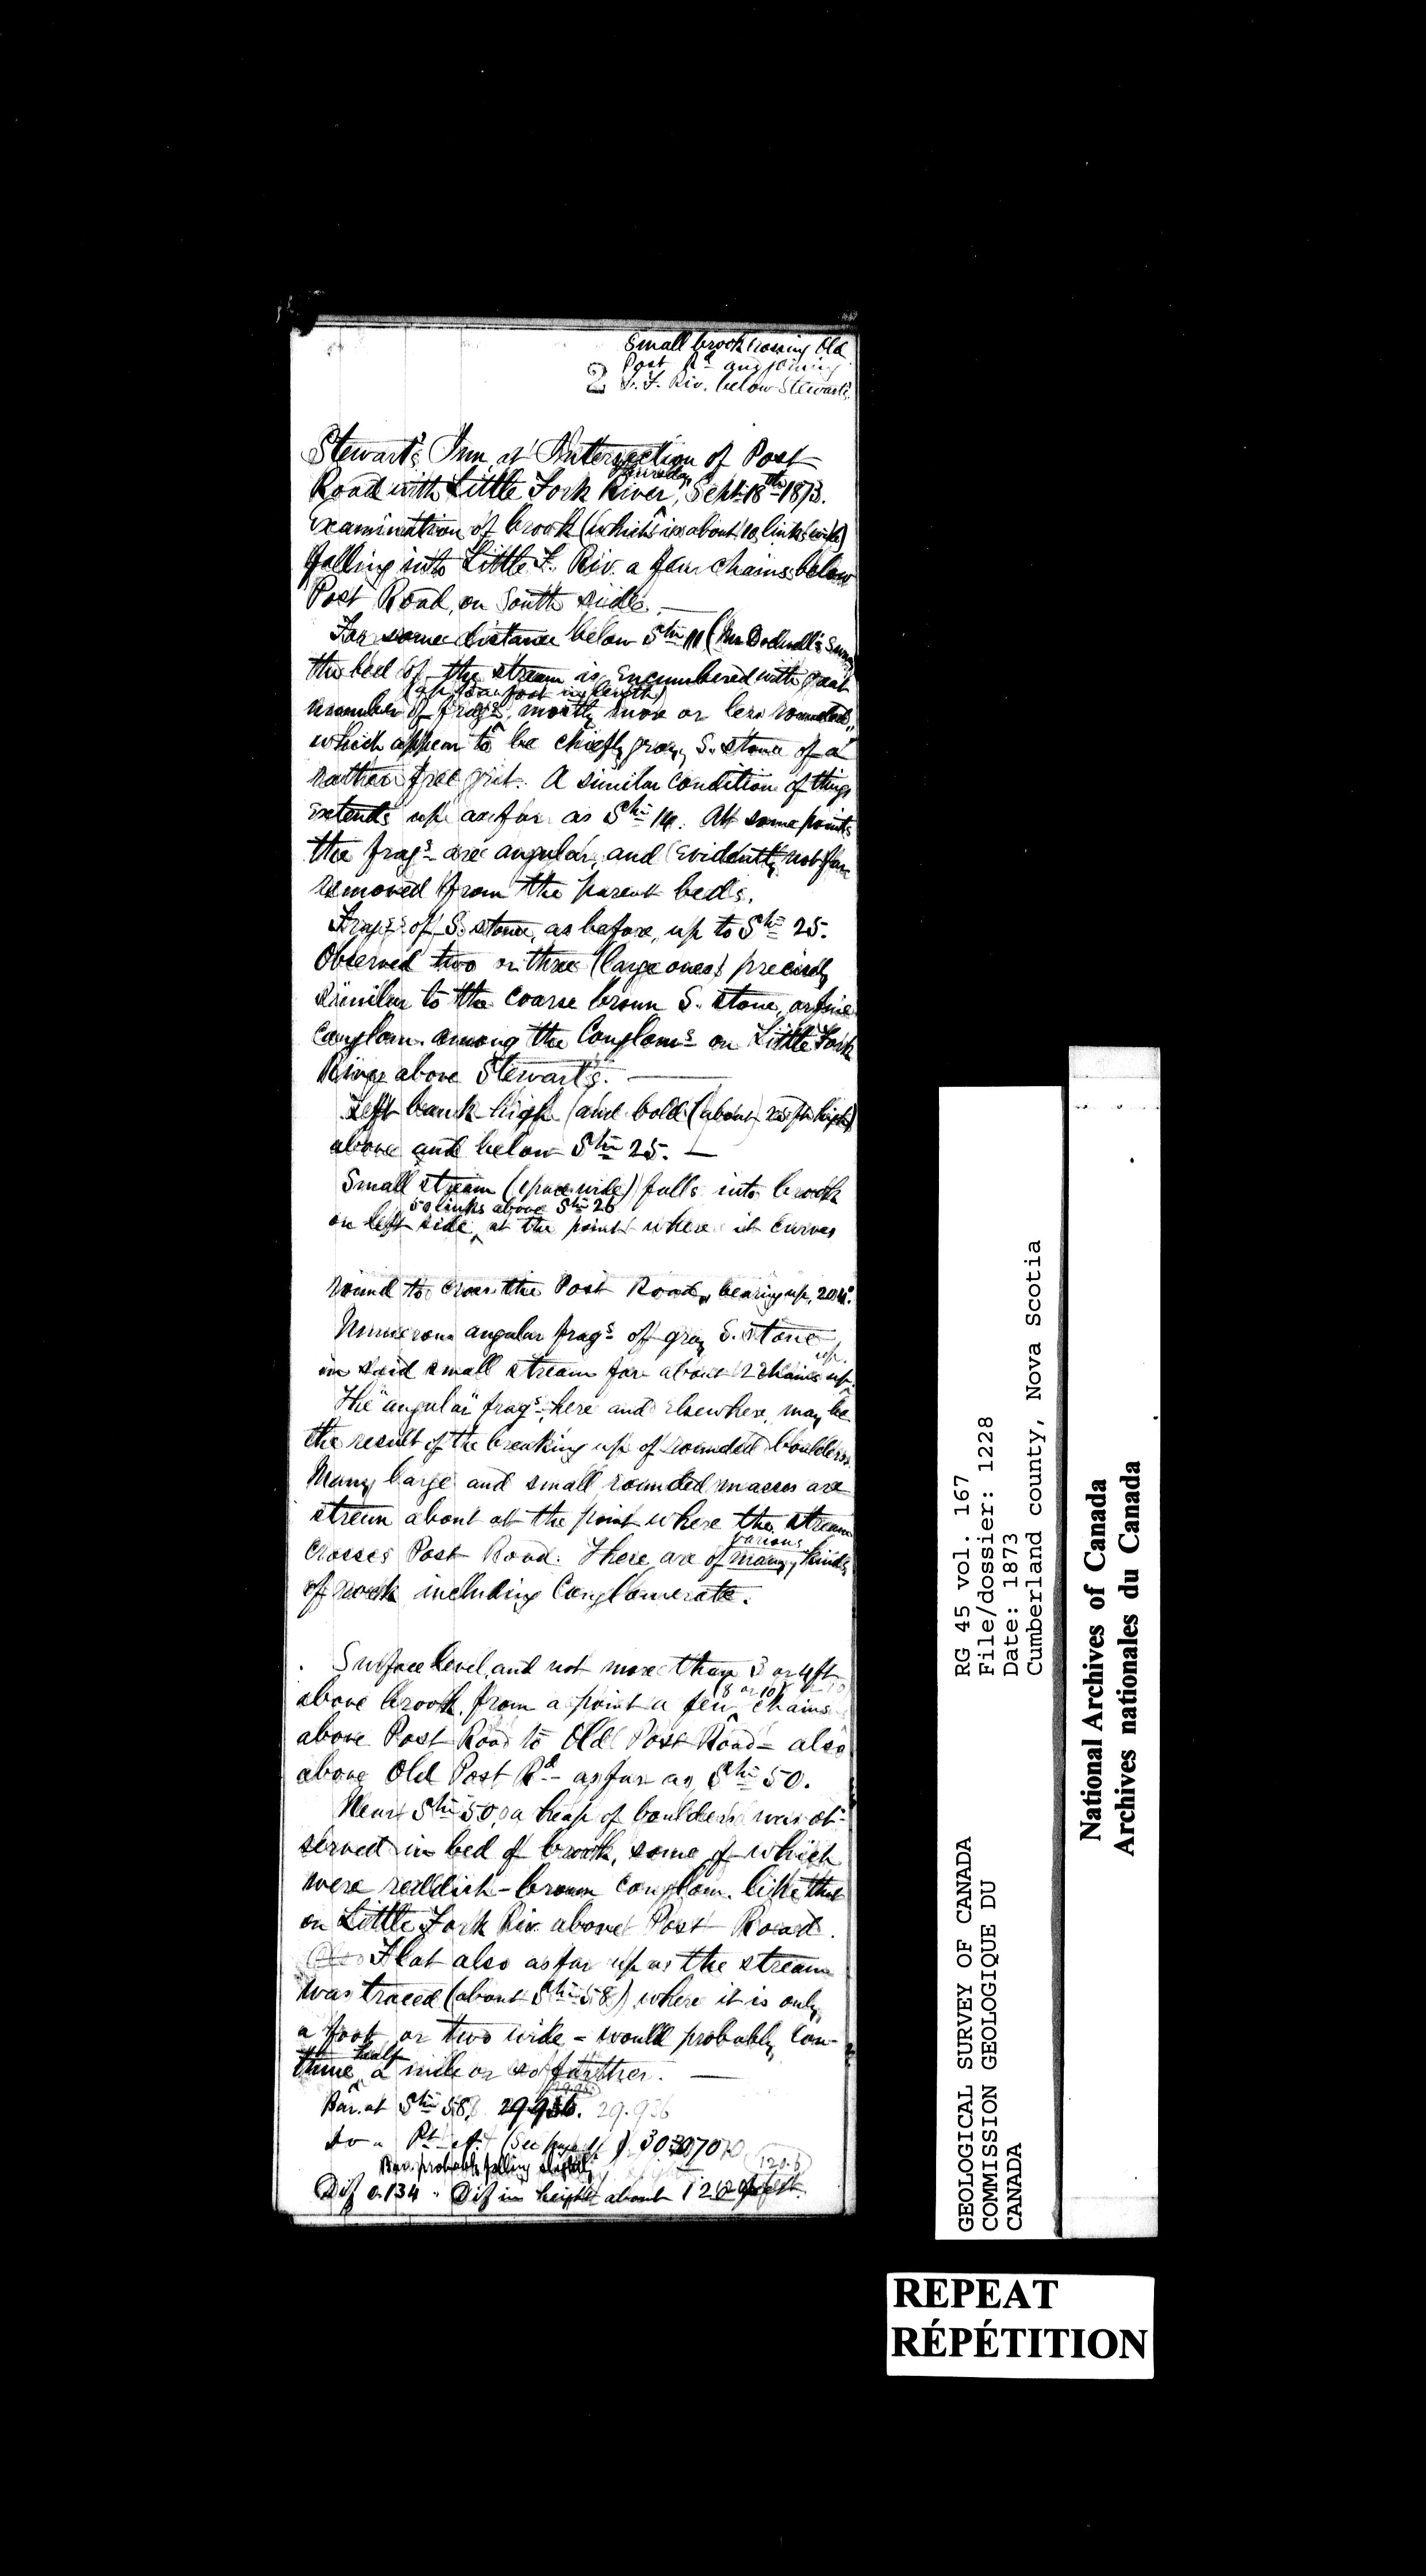 Small brook crossing Old
Post Rd and joining
2 L. F. Riv. below Stewart's.
Stewart's Inn at Intersection of Post
Thursday
Road with Little Fork River, Sept. 18th 1873.
Examination of brook (which is about 10 links wide)
falling into Little F. Riv. a few chains below
Post Road, on South side. —
For some distance below Stn 11 (Mr. 
the bed of the stream is encumbered with great
(up to a foot in length)
number of frags, mostly more or less rounded,
which appear to be chiefly gray S. stone of a
rather free grit. A similar condition of things
extends up as far as Stn 14. At some points
the frags are angular, and evidently not far
removed from the parent beds.
Frags of S. stone, as before, up to Stn 25.
Observed two or three (large ones) precisely
similar to the coarse brown S. stone, or fine
Conglom. among the Congloms on Little Fork
River above Stewart's. —
Left bank high and bold (about ft. high)
above and below Stn 25. —
Small stream (1 pace wide) falls into brook
50 links above Stn 26
on left side, at the point where it curves
round to cross the Post Road, bearing up, 204°.
Numerous angular frags of gray S. stone
up.
in said small stream for about 2 chains up.
The "angular" frags, here and elsewhere, may be
the result of the breaking up of rounded boulders.
Many large and small rounded masses are
strewn about at the point where the stream
various
crosses Post Road. These are of many kinds
of rock including Conglomerate.
Surface level, and not more than 3 or 4 ft
(8 or 10)
above brook from a point a few chains
above Post Road to Old Post Road - also
above Old Post Rd as far as Stn 50.
Near Stn 50, a heap of boulders was ob-
served in bed of brook, some of which
were reddish-brown conglom. like that
on Little Fork Riv above Post Road.
Flat also as far up as the stream
was traced (about Stn 58) where it is only
a foot or two wide - would probably con-
half
tinue a mile or so further. —
Bar. at Stn 58, 29.936. 29.936
do " (See page ) 30.070
Bar. probably falling slightly
(120.6)
Dif 0.134 " Dif in height about feet.
RG 45 vol. 167
File/dossier: 1228
Date: 1873
Cumberland county, Nova Scotia
GEOLOGICAL SURVEY OF CANADA
COMMISSION GEOLOGIQUE DU
CANADA
National Archives of Canada
Archives nationales du Canada
REPEAT
RÉPÉTITION